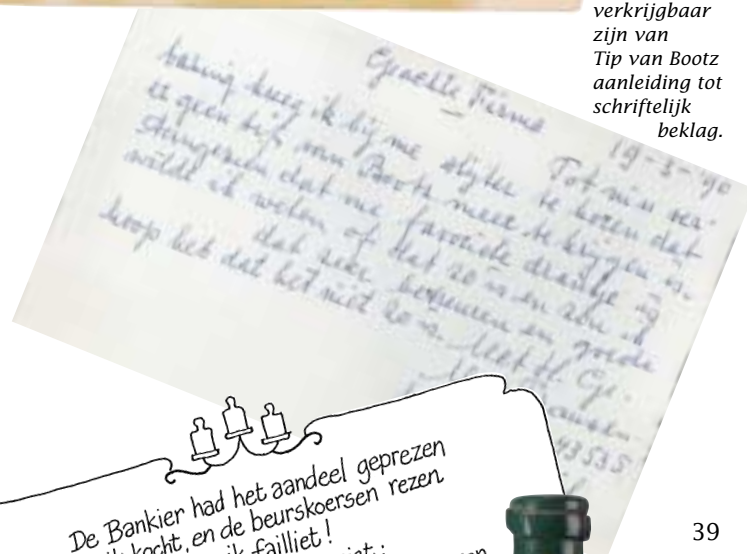 verkrijgbaar
zijn van
Tip van Bootz
aanleiding tot
schriftelijk
beklag.
Geachte Firma
19-3-'90
Tot mijn ver-
bazing kreeg ik bij me slijter te horen dat
er geen tip van Bootz meer te krijgen is.
Aangezien dat me favoriete drankje is
wilde ik weten of dat zo is en zou ik
dat zeer betreuren en goede
hoop heb dat het niet zo is. Met H. Gr.
43535
De Bankier had het aandeel geprezen
kocht, en de beurskoersen rezen
ik failliet!
39